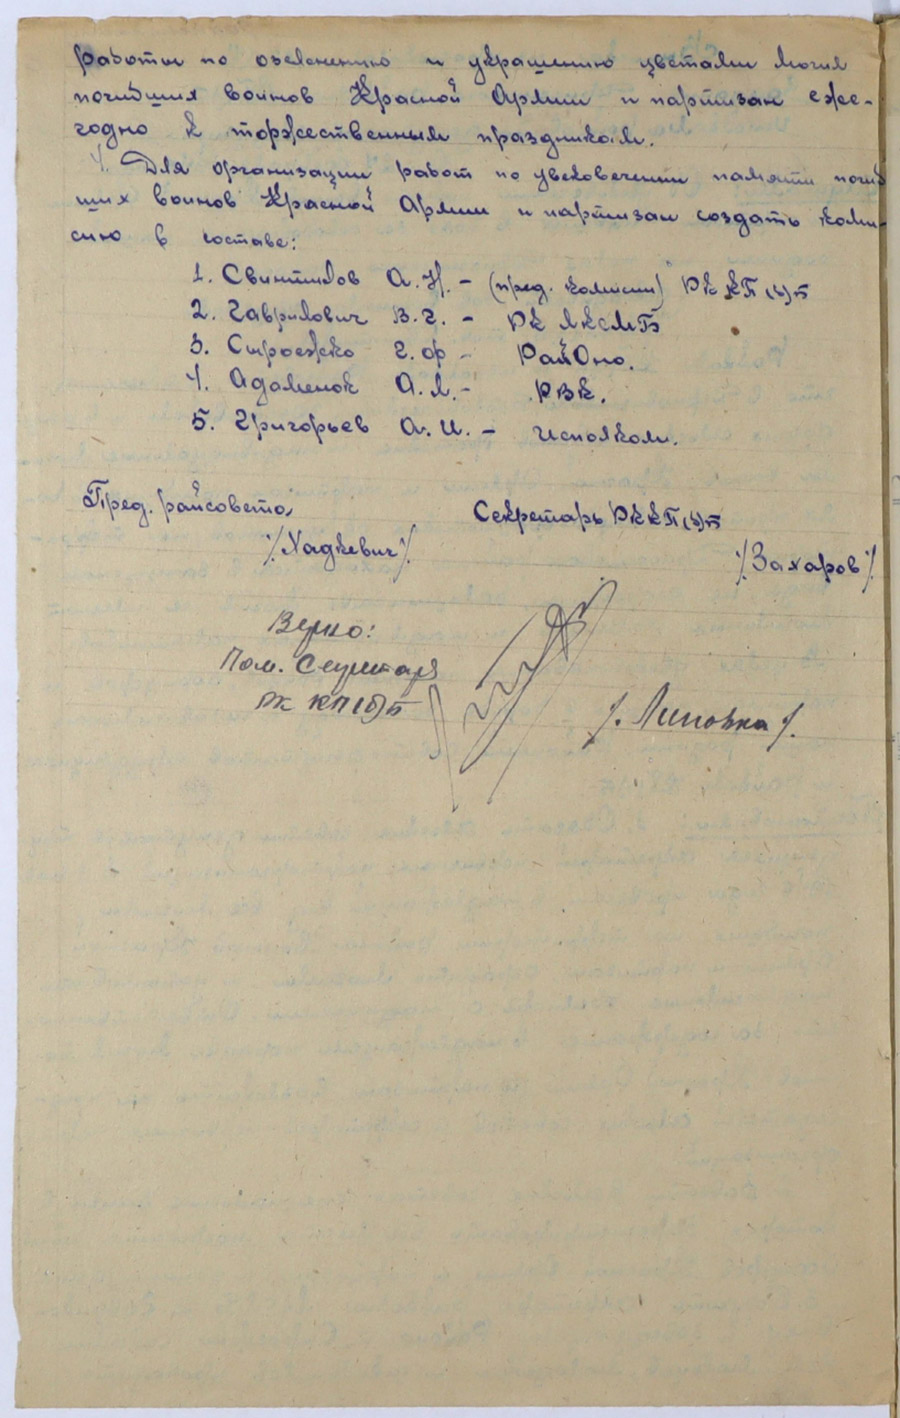 работы по озеленению и украшению цветами могил
погибших воинов Красной Армии и партизан еже-
годно к торжественным праздникам.
4. Для организации работ по увековечении памяти погиб
ших воинов Красной Армии и партизан создать коми-
сию в составе:
1. Свинтилов А.Н. - (пред. комисии) РК КП(б)Б
2. Гаврилович В.Г. - РК ЛКСМБ
3. Сыроежко Г.Ф - РайОно.
4. Адаменок А.Л. - РВК.
5. Григорьев А.И. - Исполком.
Пред. райсовета Секретарь РККП(б)Б
/Хадкевич/ /Захаров/
Верно:
Пом. Секретаря
РК КП(б)Б /. Липовка /.